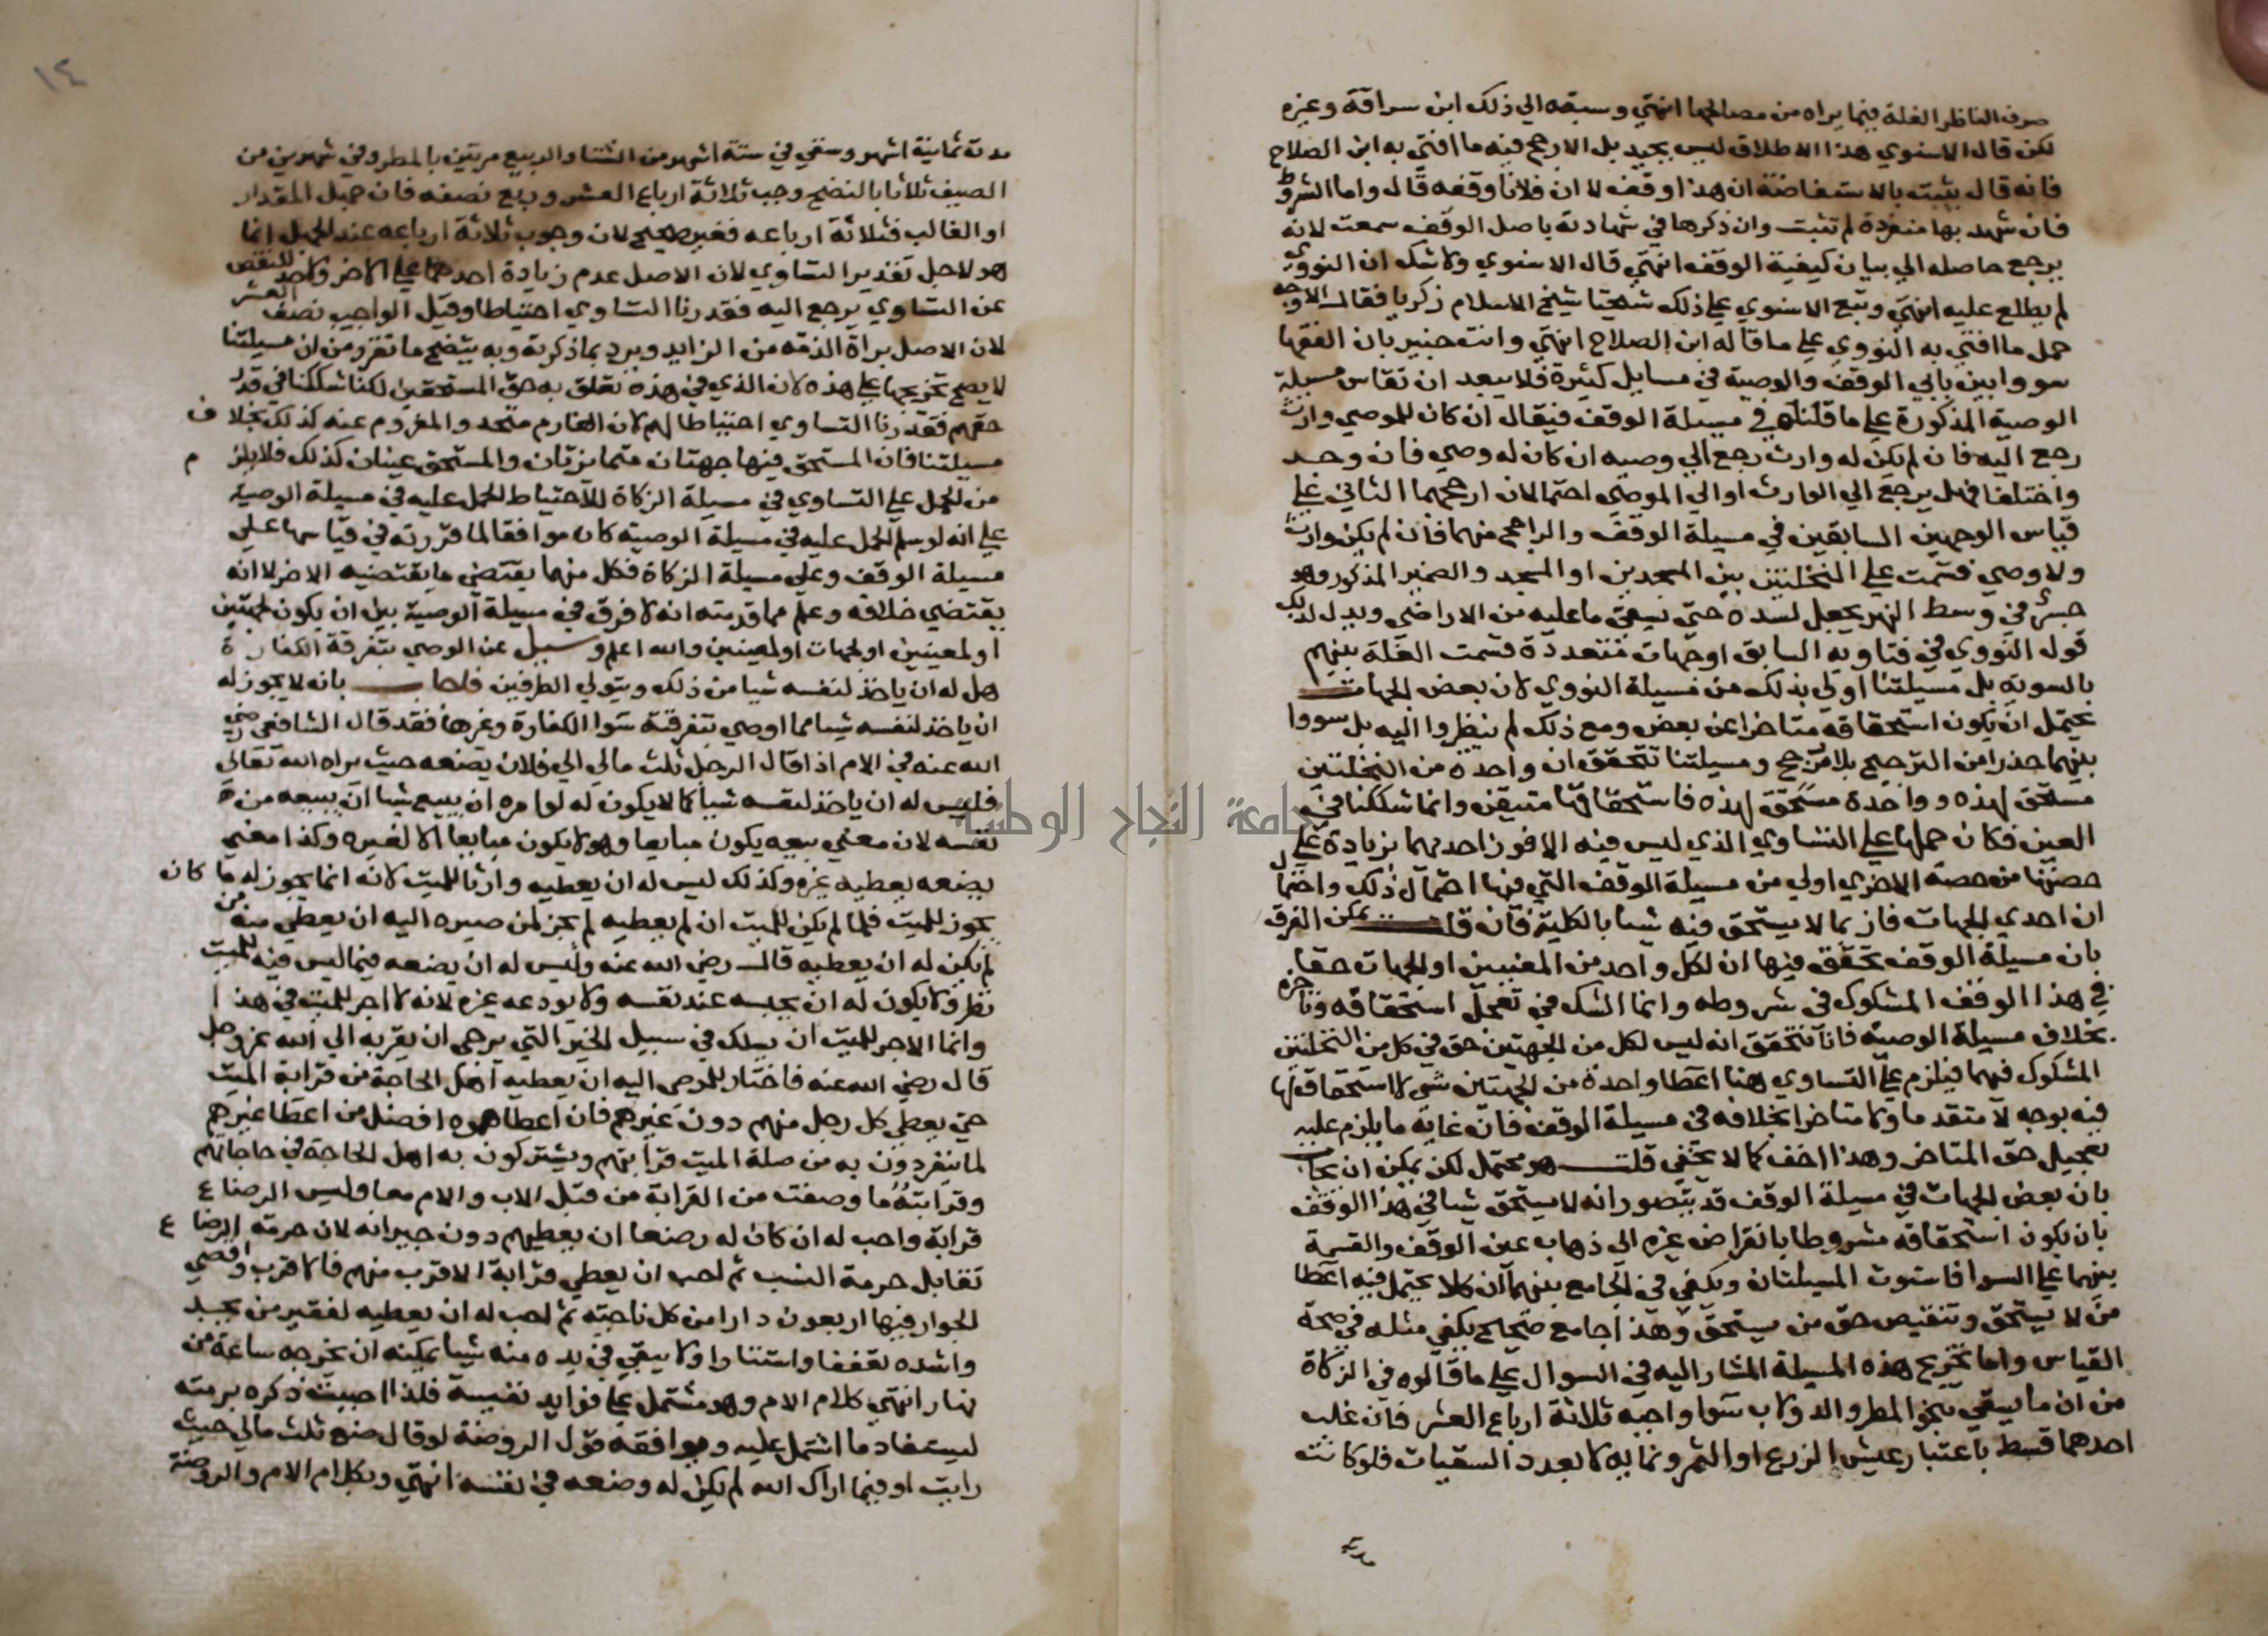 صرف الناظر الغلة فيما يراه من مصالحها انتهي وسبقه الي ذلك ابن سراقة وغيره
لكن قال الاسنوي هذا الاطلاق ليس بجيد بل الارجح فيه ما افتي به ابن الصلاح
فانه قال يثبت بالاستفاضة ان هذا وقف لا ان فلانا وقفه قال واما الشروط
فان شهد بها منفردة لم تثبت وان ذكرها في شهادته باصل الوقف سمعت لانه
يرجع حاصله الي بيان كيفية الوقف انتهي قال الاسنوي ولا شك ان النووي
لم يطلع عليه انتهي وتبع الاسنوي علي ذلك شيخنا شيخ الاسلام زكريا فقال الاوجه
حمل ما افتي به النووي علي ما قاله ابن الصلاح انتهي وانت خبير بان الفقها
سووا بين بابي الوقف والوصية في مسايل كثيرة فلا يبعد ان تقاس مسيلة
الوصية المذكورة علي ما قلناه في مسيلة الوقف فيقال ان كان للموصي وارث
رجع اليه فان لم يكن له وارث رجع الي وصيه ان كان له وصي فان وجد
واختلفا فهل يرجع الي الوارث او الي الموصي احتمالان ارجحهما الثاني علي
قياس الوجهين السابقين في مسيلة الوقف والراجح منهما فان لم يكن وارث
ولا وصي قسمت علي النخلتين بين المسجدين او المسجد والضمير المذكور وهو
جسر في وسط النهر يجعل لسده حتي يسقي ما عليه من الاراضي ويدل لذلك
قول النووي في فتاويه السابق او جهات متعددة قسمت الغلة بينهم
بالسوية بل مسيلتنا اولي بذلك من مسيلة النووي لان بعض الجهات
يحتمل ان يكون استحقاقه متاخرا عن بعض ومع ذلك لم ينظروا اليه بل سووا
بينهما حذرا من الترجيح بلا مرجح ومسيلتنا تتحقق ان واحدة من النخلتين
مستحق لهذه وواحدة مستحق لهذه فاستحقاقها متيقن وانما شككنا في
العين فكان حملها علي التساوي الذي ليس فيه الا فوز احدهما بزيادة علي
حصتها من حصة الاخري اولي من مسيلة الوقف التي فيها احتمال ذلك واحتمال
ان احدي الجهات فاز بما لا يستحق فيه شيا بالكلية فان قلت يمكن الفرق
بان مسيلة الوقف تحقق فيها ان لكل واحد من المعنيين او الجهات حقا
في هذا الوقف المشكوك في شروطه وانما الشك في تعجل استحقاقه وتاخره
بخلاف مسيلة الوصية فانا نتحقق انه ليس لكل من الجهتين حق في كل من النخلتين
المشكوك فيهما فيلزم علي التساوي هنا اعطا واحدة من الجهتين شي لا استحقاق لها
فيه بوجه لا متقدما ولا متاخرا بخلافه في مسيلة الوقف فان غاية ما يلزم عليه
تعجيل حق المتاخر وهذا اخف كما لا يخفي قلت هو محتمل لكن يمكن ان يجاب
بان بعض الجهات في مسيلة الوقف قد يتصور انه لا يستحق شيا في هذا الوقف
بان يكون استحقاقه مشروطا بانقراض غيره الي ذهاب عين الوقف والقسمة
بينهما علي السوا فاستوت المسيلتان ويكفي في الجامع بينهما ان كلا يحتمل فيه اعطا
من لا يستحق وتنقيص حق من يستحق وهذا جامع صحيح يكفي مثله في صحة
القياس واما تخريج هذه المسيلة المشار اليه في السوال علي ما قالوه في الزكاة
من ان ما يسقي بنحو المطر والدولاب سوا واجبه ثلاثة ارباع العشر فان غلب
احدهما قسط باعتبار عيش الزرع او الثمر ونمايه لا بعدد السقيات فلو كانت
مدته ثمانية اشهر وسقي في ستة اشهر من الشتا والربيع مرتين بالمطر وفي شهرين من
الصيف ثلاثا بالنضح وجب ثلاثة ارباع العشر وربع نصفه فان جهل المقدار
او الغالب فثلاثة ارباعه فغير صحيح لان وجوب ثلاثة ارباعه عند الجهل انما
هو لاجل تقدير التساوي لان الاصل عدم زيادة احدهما علي الاخر ولا حد للنقص
عن التساوي يرجع اليه فقدرنا التساوي احتياطا وقيل الواجب نصف العشر
لان الاصل براة الذمة من الزايد ويرد بما ذكرته وبه يتضح ما تقرر من ان مسيلتنا
لا يصح تخريجها علي هذه لان الذي في هذه تعلق به حق المستحقين لكنا شككنا في قدر
حقهم فقدرنا التساوي احتياطا لهم لان الغارم متحد والمغروم عنه كذلك بخلاف
مسيلتنا فان المستحق فيها جهتان متمايزتان والمستحق عينان كذلك فلا يلزم
من الحمل علي التساوي في مسيلة الزكاة للاحتياط الحمل عليه في مسيلة الوصية
علي انه لو سلم الحمل عليه في مسيلة الوصية كان موافقا لما قررته في قياسها علي
مسيلة الوقف وعلي مسيلة الزكاة فكل منهما يقتضي ما يقتضيه الاخر لا انه
يقتضي خلافه وعلم مما قدمته انه لا فرق في مسيلة الوصية بين ان يكون لجهتين
او لمعينين او لجهات او لمعينين والله اعلم وسيل عن الوصي بتفرقة الكفارة
هل له ان ياخذ لنفسه شيا من ذلك ويتولي الطرفين فاجاب بانه لا يجوز له
ان ياخذ لنفسه شيا مما اوصي بتفرقته سوا الكفارة وغرها فقد قال الشافعي رضي
الله عنه في الام اذا قال الرجل ثلث مالي الي فلان يضعه حيث يراه الله تعالي
فليس له ان ياخذ لنفسه شيا كما لا يكون له لو امره ان يبيع شيا ان يبيعه من
نفسه لان معني بيعه يكون مبايعا وهو لا يكون مبايعا الا لغيره وكذا معني
يضعه يعطيه غيره وكذلك ليس له ان يعطيه وارثا للميت لانه انما يجوز له ما كان
يجوز للميت فلما لم يكن للميت ان لم يعطيه لم يجز لمن صيره اليه ان يعطي منه من
لم يكن له ان يعطيه قال رضي الله عنه وليس له ان يضعه فيما ليس فيه للميت
نظر ولا يكون له ان يحبسه عند نفسه ولا يودعه غيره لانه لا اجر للميت في هذا
وانما الاجر للميت ان يسلك في سبيل الخير التي يرجي ان يقربه الي الله عز وجل
قال رضي الله عنه فاختار للموصي اليه ان يعطيه اهل الحاجة من قرابة الميت
حتي يعطي كل رجل منهم دون غيرهم فان اعطاهموه افضل من اعطا غيرهم
لما ينفردون به من صلة الميت قرابتهم ويشتركون به اهل الحاجة في حاجاتهم
وقرابته ما وصفت من القرابة من قبل الاب والام معا وليس الرضاع
قرابة واحب له ان كان له رضعا ان يعطيهم دون جيرانه لان حرمة الرضاع
تقابل حرمة النسب ثم احب ان يعطي قرابة الاقرب منهم فالاقرب واقصي
الجوار فيها اربعون دارا من كل ناحية ثم احب له ان يعطيه لفقير من يجد
واشده تعففا واستتارا ولا يبقي في يده منه شيا يمكنه ان يخرجه ساعة من
نهار انتهي كلام الام وهو مشتمل علي فوايد نفيسة فلذا احببت ذكره برمته
ليستفاد ما اشتمل عليه ويوافقه قول الروضة لو قال ضع ثلث مالي حيث
رايت او فيما اراك الله لم يكن له وضعه في نفسه انتهي وبكلام الام والروضة
مدته
١٤
جامعة النجاح الوطنية